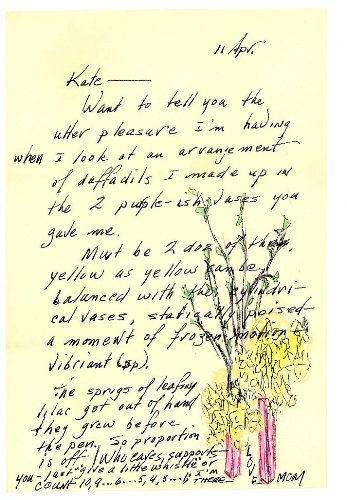 11 Apr.
Kate —
Want to tell you the
utter pleasure I'm having
when I look at an arrangement
of daffadils I made up in
the 2 purple-ish vases you
gave me.
Must be 2 doz of them,
yellow as yellow can be,
balanced with the cylindri-
cal vases, statically poised
a moment of frozen motion
Vibriant (sp).
The sprigs of leafing
lilac got out of hand
they grew before
the pen. So proportion
is off. Who cares, supports
you - just give a little whistle or
count 10, 9...6...5, 4, 5... I'm
there
LOVE
MOM